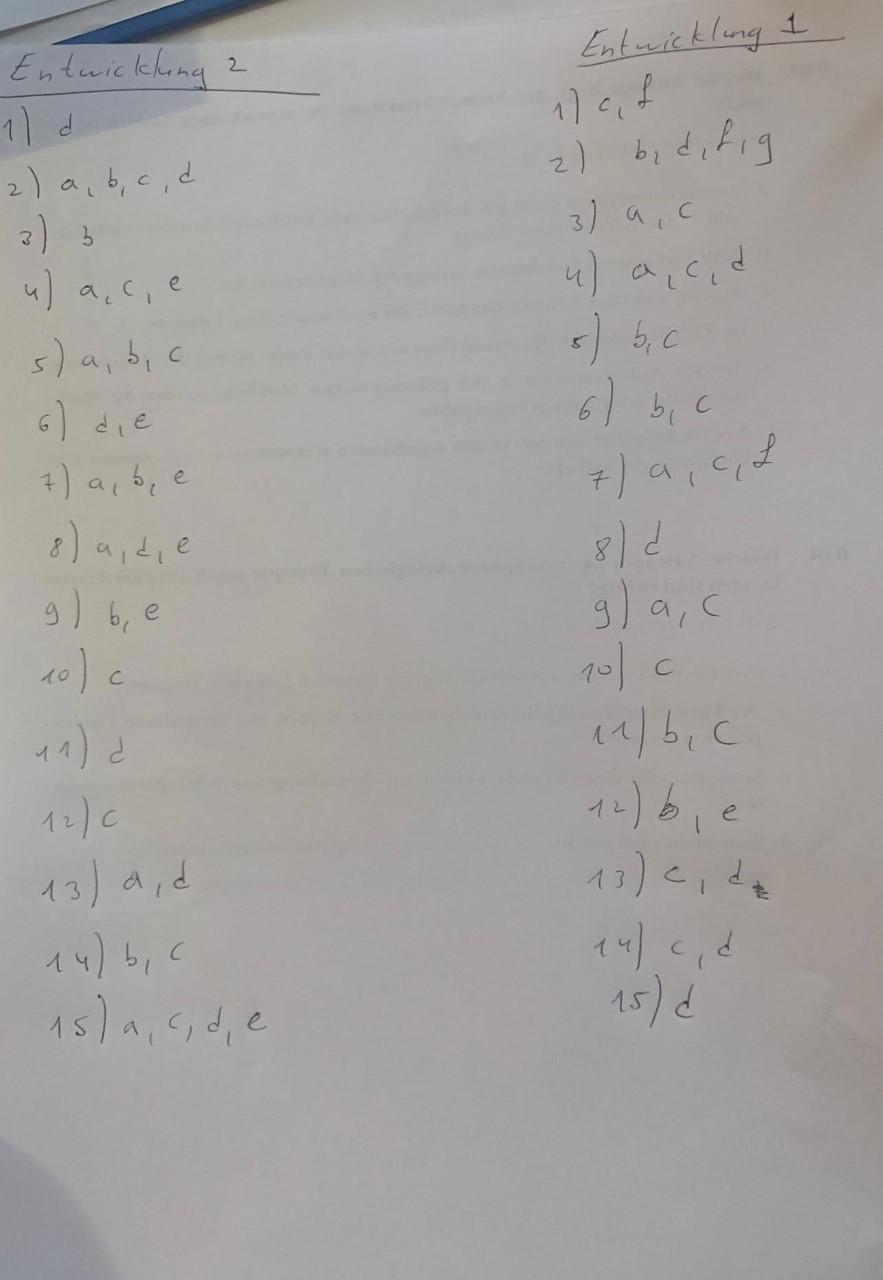 Entwicklung 2
1) d
2) a, b, c, d
3) b
4) a, c, e
5) a, b, c
6) d, e
7) a, b, e
8) a, d, e
9) b, e
10) c
11) d
12) c
13) a, d
14) b, c
15) a, c, d, e
Entwicklung 1
1) c, f
2) b, d, f, g
3) a, c
4) a, c, d
5) b, c
6) b, c
7) a, c, f
8) d
9) a, c
10) c
11) b, c
12) b, e
13) c, d
14) c, d
15) d